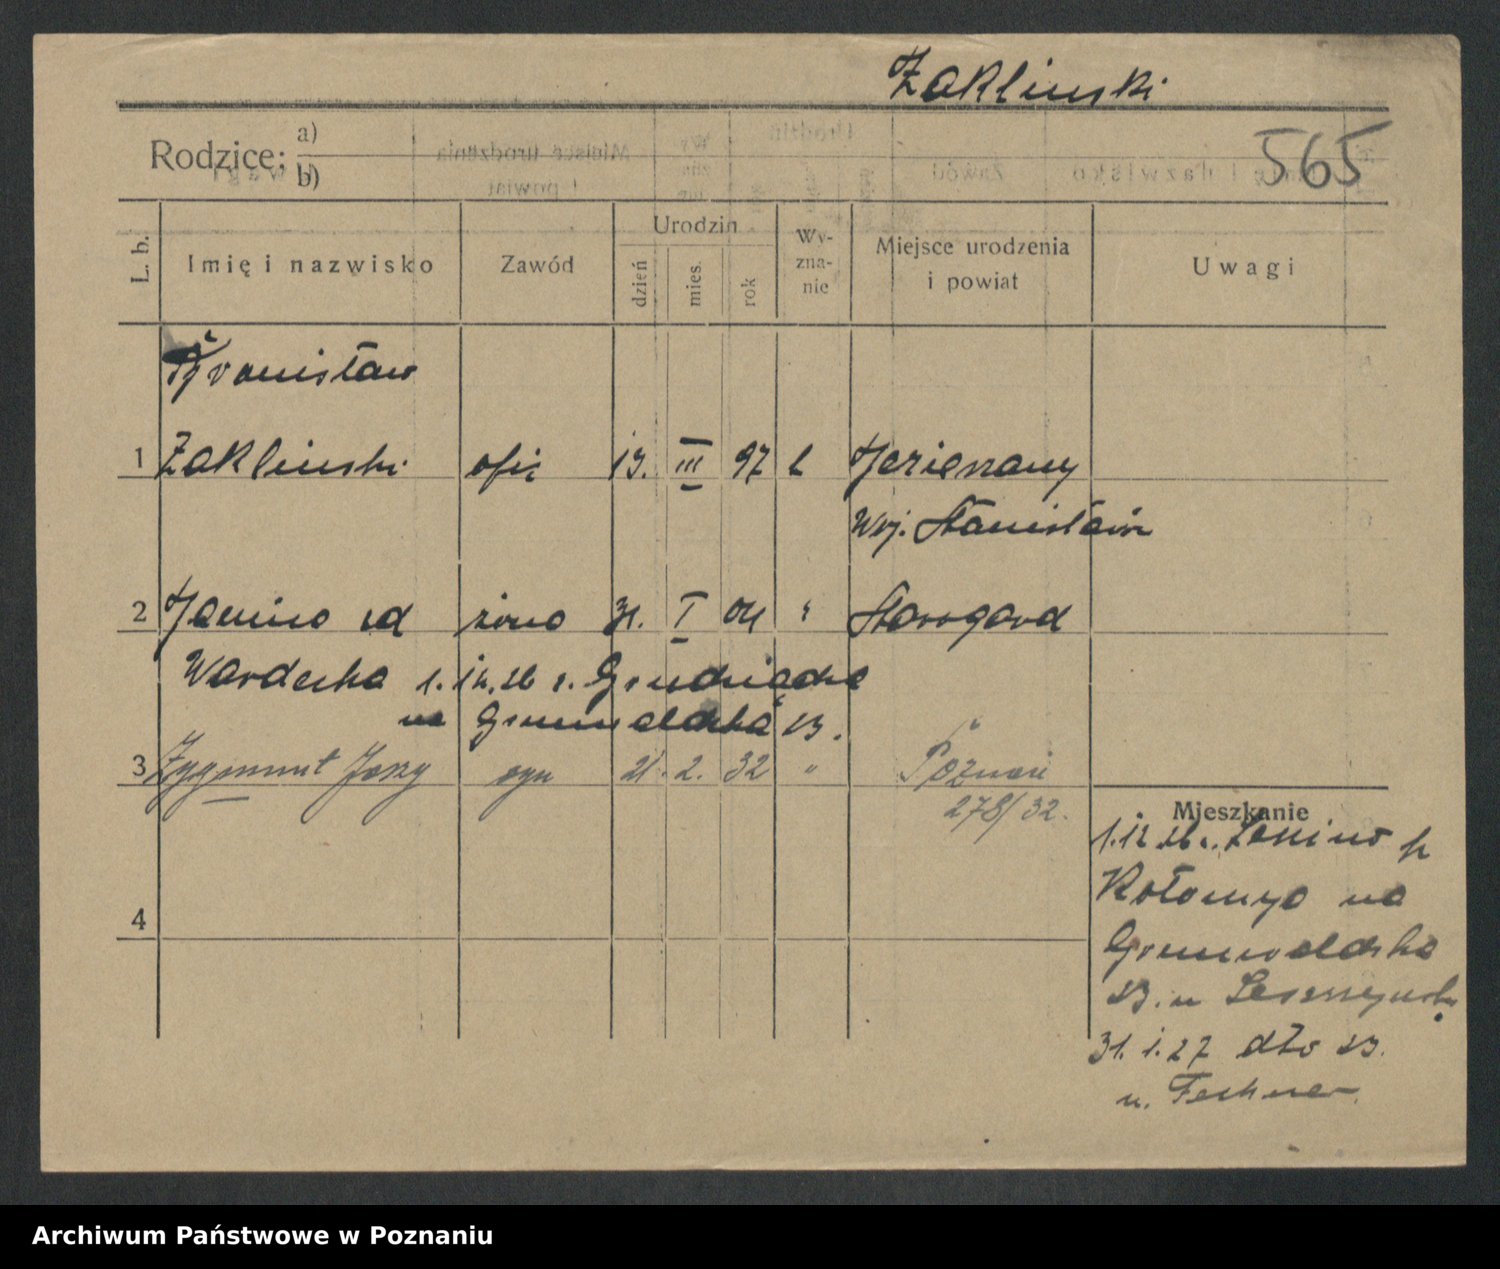 Żakliński
565
Rodzice: a)
b)
L. b. Imię i nazwisko Zawód Urodzin dzień mies. rok Wy-zna-nie Miejsce urodzenia i powiat Uwagi
Bronisław
1 Żakliński ofic 13. III 97 Jezierzany
Woj. Stanisław
2 Janina żona 31. I 04 " Starogard
Wardecka 1.12.26 Grudziądza
na Grunwaldzka 23.
3 Zygmunt Jerzy syn 21. 2. 32 " Poznań
278/32.
Mieszkanie
1.12 26
Kołomyja na
4
Grunwaldzka
23. u
31. 1. 27 dto 23.
u. Fechner
Archiwum Państwowe w Poznaniu